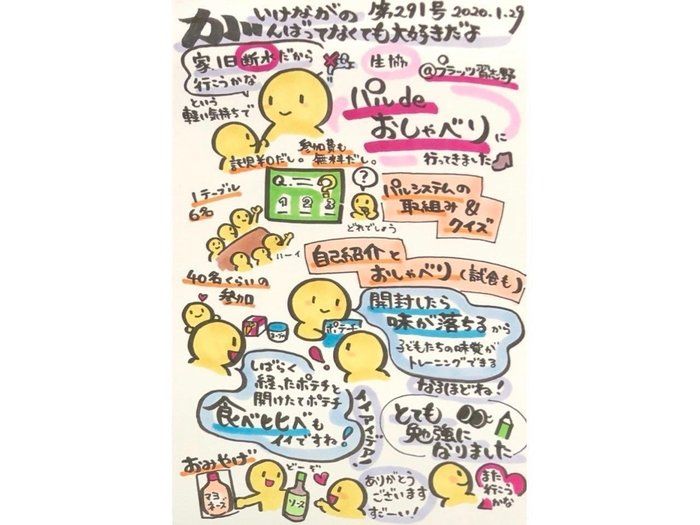 いけながの 第291号 2020.1.29
がんばってなくても大好きだよ
家1日断水だから
行こうかな
という
軽い気持ちで
生協
@プラッツ習志野
パルde
おしゃべりに
行ってきました
参加費も
託児半口だし。無料だし。
1テーブル
6名
Q.
?
1 2 3
?
どれでしょう
パルシステムの
取組み&
クイズ
ハーイ
自己紹介と
おしゃべり(試食も)
40名くらいの
参加
ポテチ
開封したら
味が落ちるから
子どもたちの味覚が
トレーニングできる
なるほどね!
しばらく
経ったポテチと
開けたてポテチ
食べ比べも
イイですね!
イイアイデア!
とても
勉強に
なりました
おみやげ
マヨ
ネーズ
どーぞ
ソース
ありがとう
ございます
すごーい!
また
行こう
かな